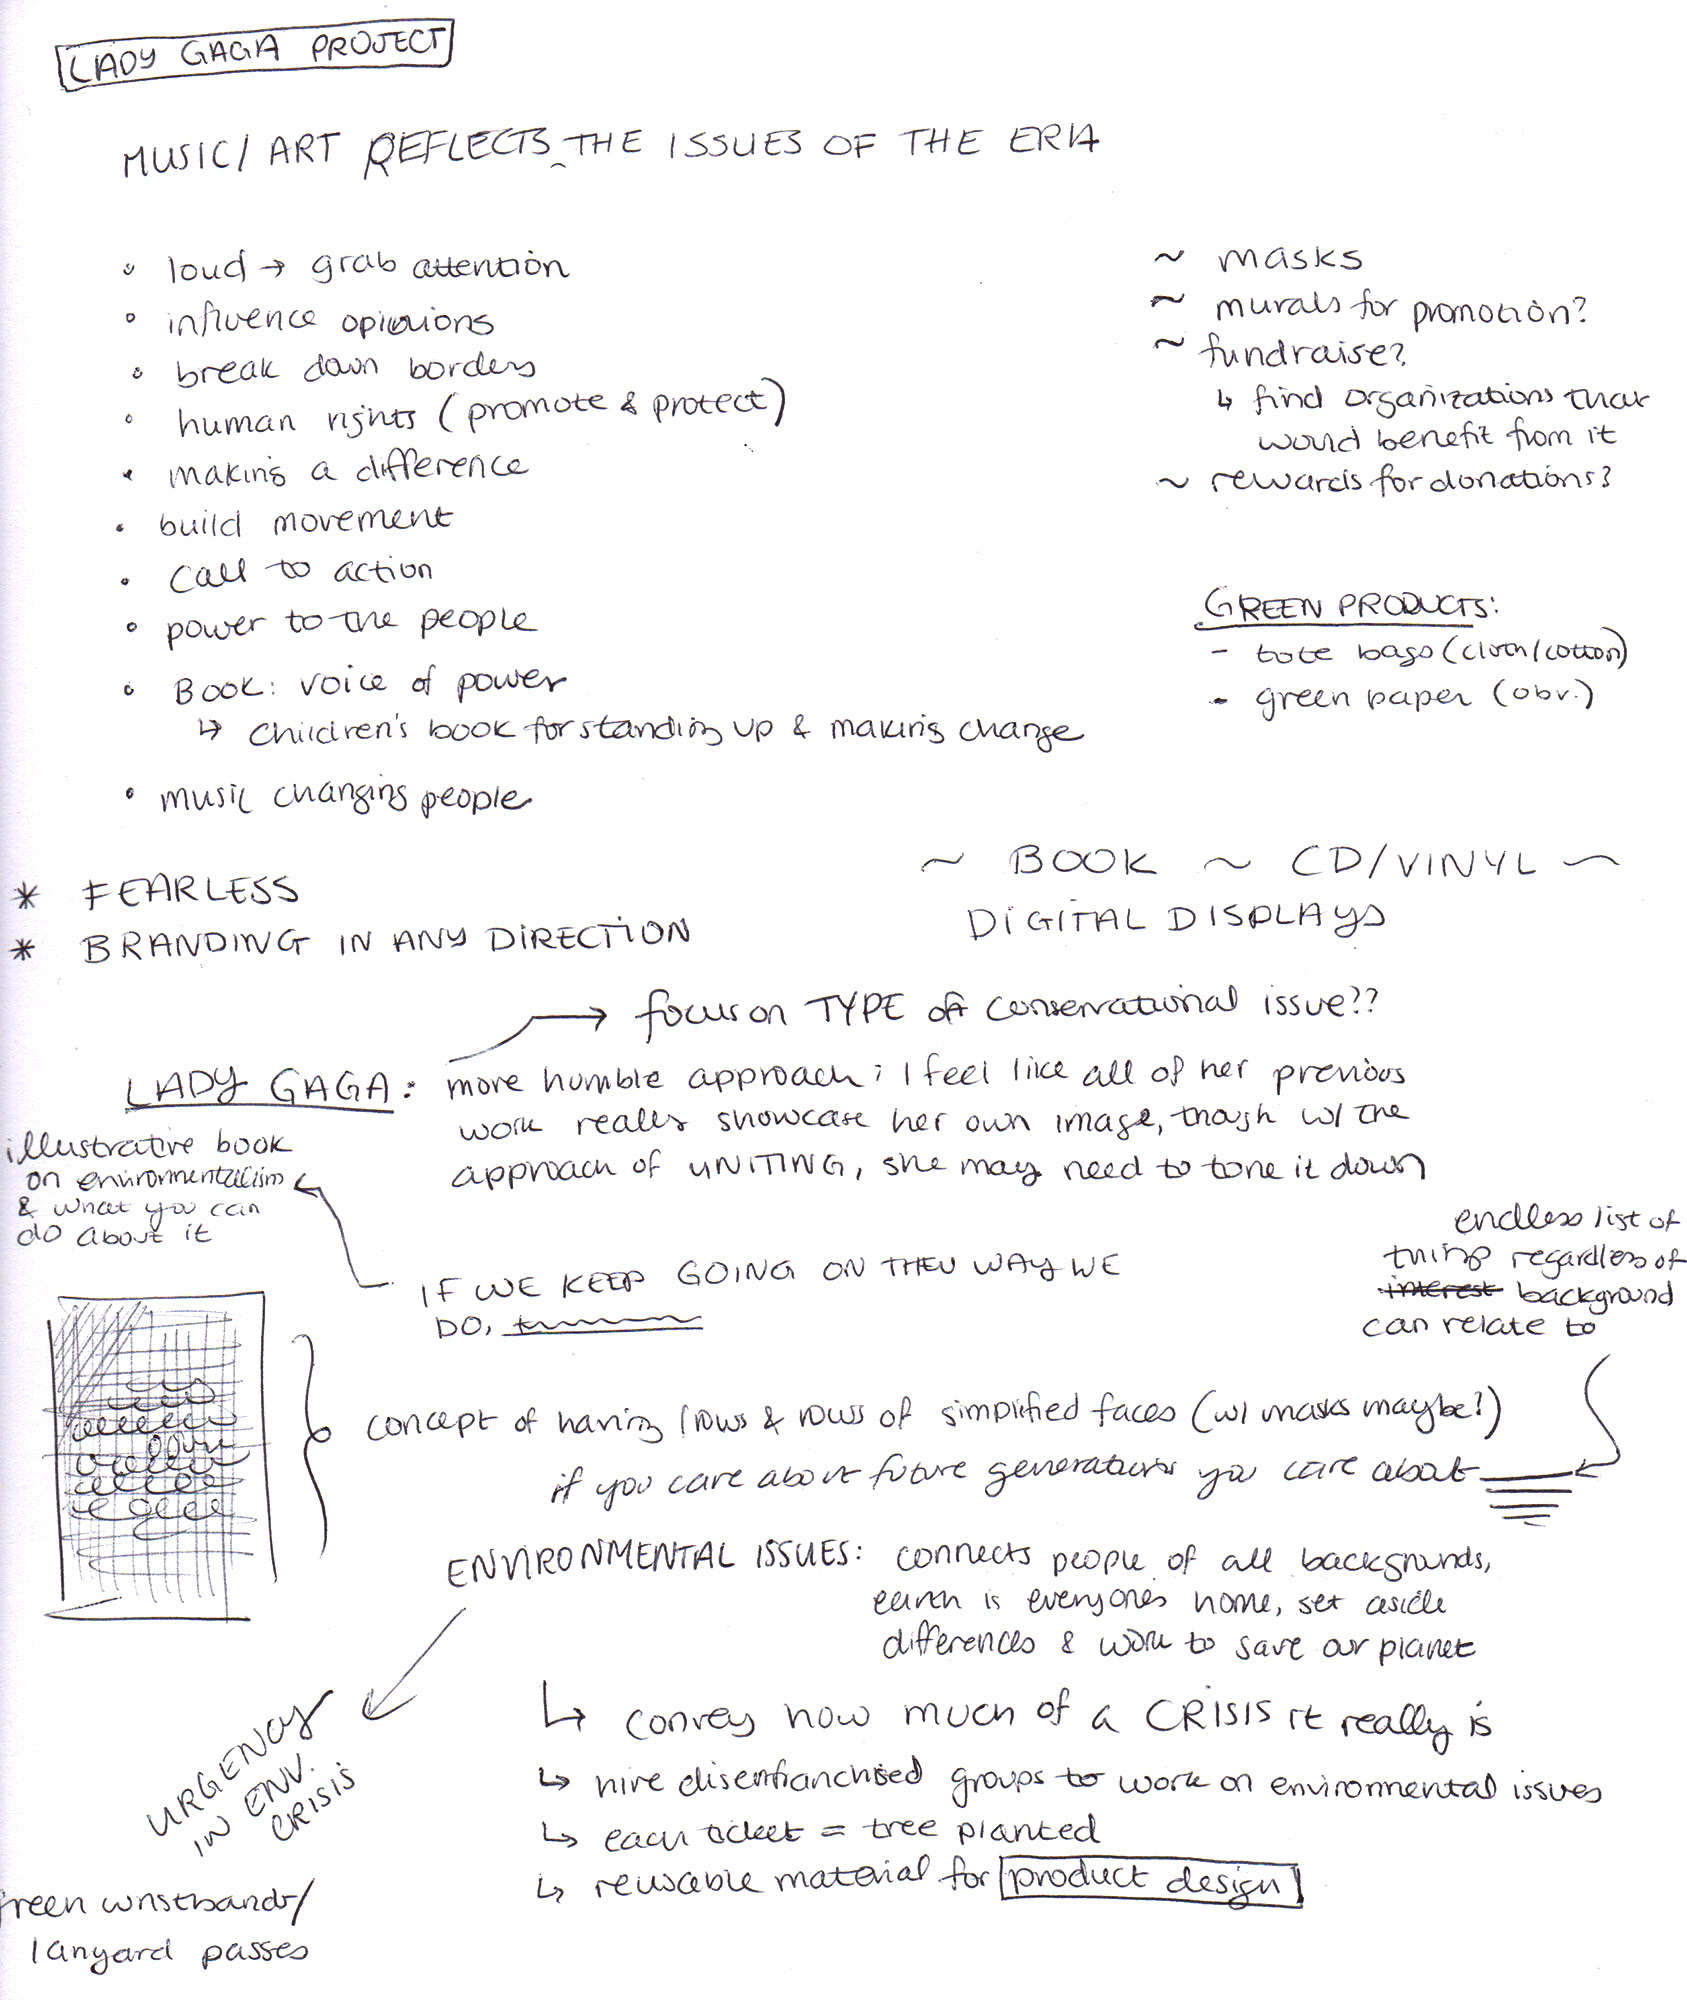 LADY GAGA PROJECT
MUSIC/ART REFLECTS THE ISSUES OF THE ERA
• loud → grab attention
• influence opinions
• break down borders
• human rights (promote & protect)
• making a difference
• build movement
• call to action
• power to the people
• BOOK: voice of power
↳ children's book for standing up & making change
• music changing people
~ masks
~ murals for promotion?
~ fundraise?
↳ find organizations that
would benefit from it
~ rewards for donations?
GREEN PRODUCTS:
- tote bags (cloth/cotton)
- green paper (obv.)
* FEARLESS
* BRANDING IN ANY DIRECTION
~ BOOK ~ CD/VINYL ~
DIGITAL DISPLAYS
→ focus on TYPE of conservational issue??
LADY GAGA: more humble approach; I feel like all of her previous
work really showcase her own image, though w/ the
approach of UNITING, she may need to tone it down
illustrative book
on environmentalism
& what you can
do about it
IF WE KEEP GOING ON THEU WAY WE
DO,
endless list of
things regardless of
interest background
can relate to
concept of having rows & rows of simplified faces (w/ masks maybe?)
if you care about future generations you care about
ENVIRONMENTAL ISSUES: connects people of all backgrounds,
earth is everyones home, set aside
differences & work to save our planet
↳ convey how much of a CRISIS it really is
↳ hire disenfranchised groups to work on environmental issues
↳ each ticket = tree planted
↳ reusable material for product design
URGENCY
IN ENV.
CRISIS
reen wristbands/
lanyard passes